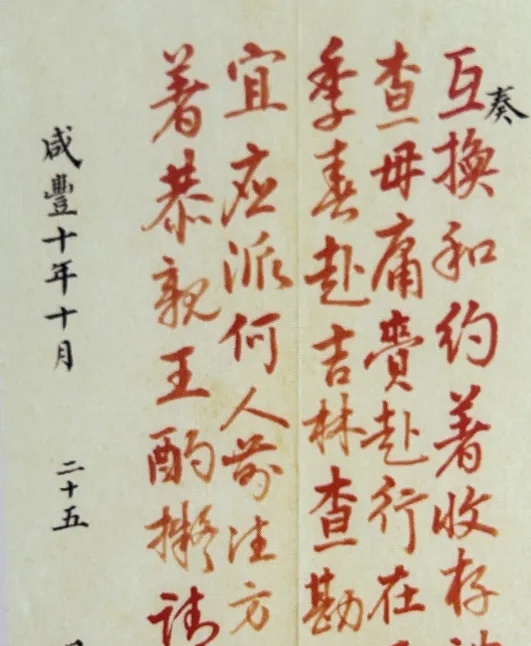 奏
互換和約著收存
查毋庸賫赴行在
季春赴吉林查勘
宜應派何人前往方
著恭親王酌擬請
咸豐十年十月 二十五